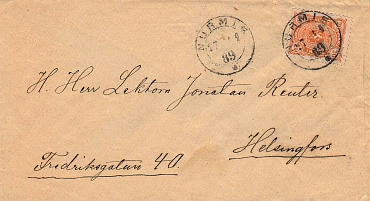 NURMIS
89
NURMIS
89
H. Herr Lektorn Jonatan Reuter.
Helsingfors
Fredriksgatan 40.